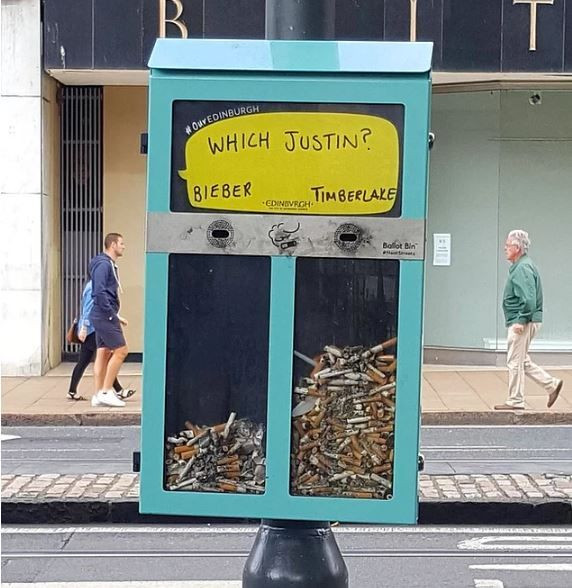 B I T
#OurEDINBURGH
WHICH JUSTIN?
BIEBER TIMBERLAKE
•EDINBVRGH•
Ballot Bin